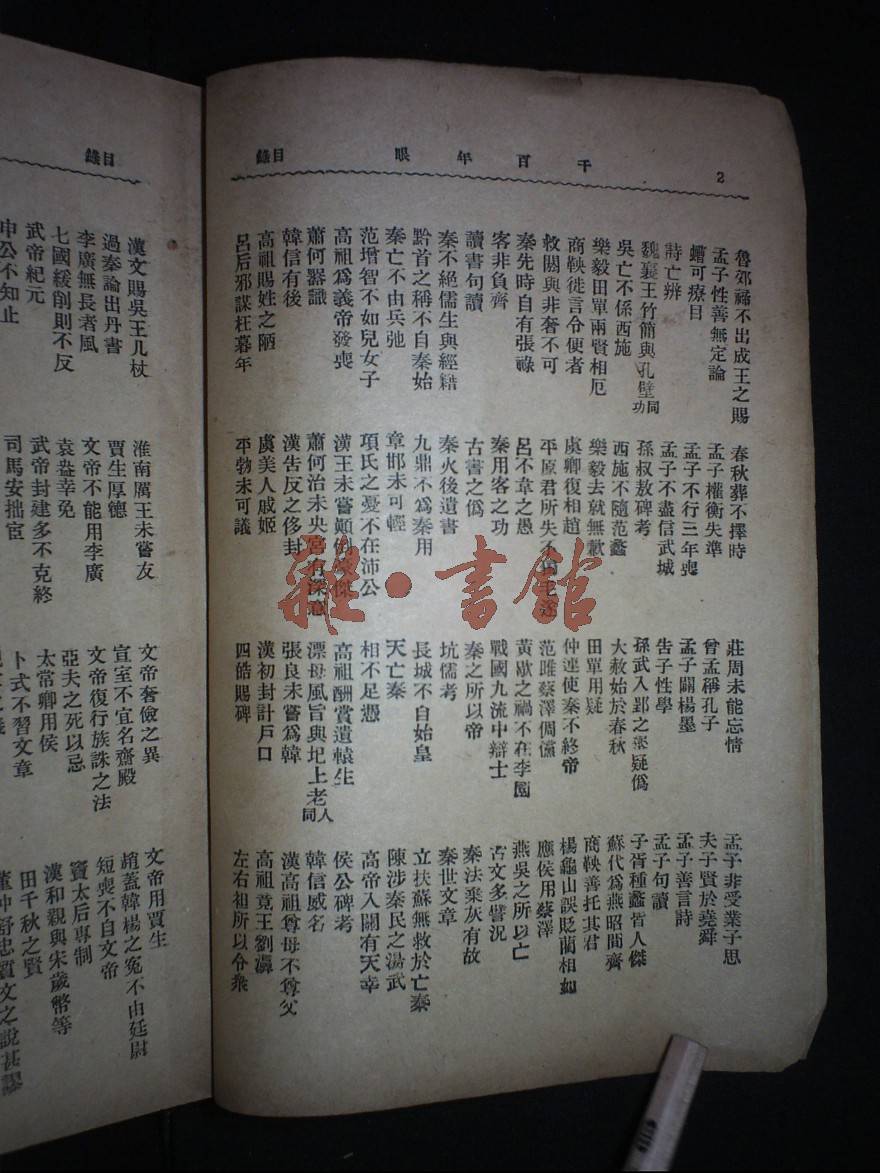 2
千百年眼
目錄
魯郊禘不出成王之賜
春秋葬不擇時
莊周未能忘情
孟子非受業子思
孟子性善無定論
孟子權衡失準
曾孟稱孔子
夫子賢於堯舜
螬可療目
孟子不行三年喪
孟子闢楊墨
孟子善言詩
亡辨
孟子不盡信武城
告子性學
孟子句讀
魏襄王竹簡與孔壁同功
孫叔敖碑考
孫武入郢之舉疑僞
子胥種蠡皆人傑
吳亡不係西施
西施不隨范蠡
大赦始於春秋
蘇代爲燕昭間齊
樂毅田單兩賢相厄
樂毅去就無歉
田單用疑
商鞅善托其君
商鞅徙言令便者
虞卿復相趙
仲連使秦不終帝
楊龜山誤貶藺相如
救閼與非奢不可
平原君所失不獨毛遂
范雎蔡澤倜儻
應侯用蔡澤
秦先時自有張祿
呂不韋之愚
黃歇之禍不在李園
燕吳之所以亡
客非負齊
秦用客之功
戰國九流中辯士
古文多譬況
讀書句讀
古書之僞
秦之所以帝
秦法棄灰有故
秦不絕儒生與經籍
秦火後遺書
坑儒考
秦世文章
黔首之稱不自秦始
九鼎不爲秦用
長城不自始皇
立扶蘇無救於亡秦
秦亡不由兵弛
章邯未可輕
天亡秦
陳涉秦民之湯武
范增智不如兒女子
項氏之憂不在沛公
相不足憑
高帝入關有天幸
高祖爲義帝發喪
漢王未嘗顛倒豪傑
高祖酬賞遺轅生
侯公碑考
蕭何器識
蕭何治未央宮有深意
漂母風旨與圯上老人同
韓信威名
韓信有後
漢告反之侈封
張良未嘗爲韓
漢高祖尊母不尊父
高祖賜姓之陋
虞美人戚姬
漢初封計戶口
高祖竟王劉濞
呂后邪謀枉暮年
平勃未可議
四皓賜碑
左右袒所以令衆
雜·書館
目錄
漢文賜吳王几杖
淮南厲王未嘗友
文帝奢儉之異
文帝用賈生
過秦論出丹書
賈生厚德
宣室不宜名齋殿
趙蓋韓楊之冤不由廷尉
李廣無長者風
文帝不能用李廣
文帝復行族誅之法
短喪不自文帝
七國緩削則不反
袁盎幸免
亞夫之死以忌
竇太后專制
武帝紀元
武帝封建多不克終
太常卿用侯
漢和親與宋歲幣等
申公不知止
司馬安拙宦
卜式不習文章
田千秋之賢
董仲舒忠質文之說甚謬